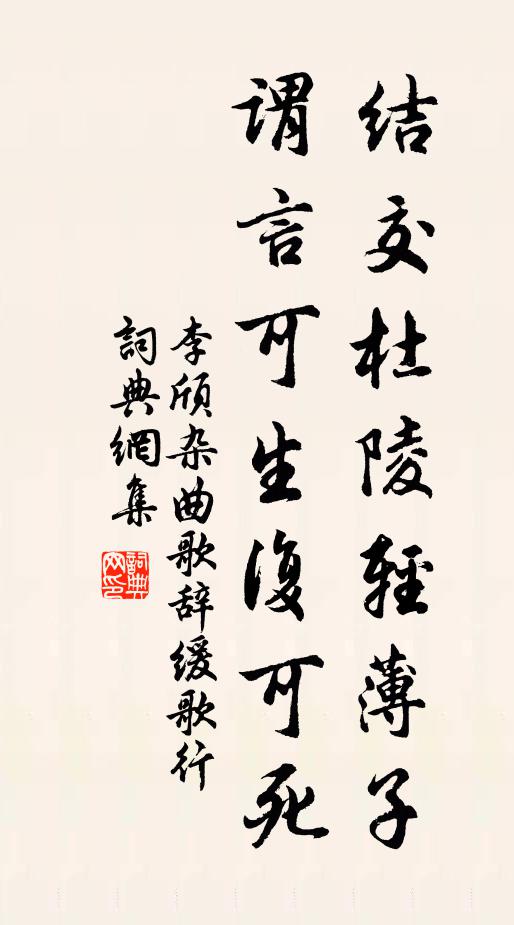 结交杜陵轻薄子
谓言可生復可死
李颀杂曲歌辞缓歌行
詞典網集
詞典
网印